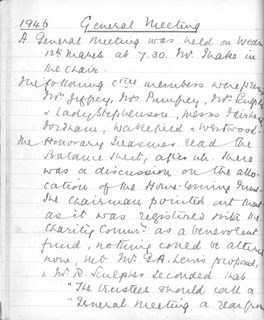 1946 General Meeting
A General Meeting was held on Weds
13th March at 7.30. Mr. Thake in
the Chair.
The following Cttee members were
Mr. Jeffrey, Mrs Pumfrey, Mr.
& Lady Stephenson, Messrs
Fordham, Wakefield & Westwood.
The Honorary Treasurer read the
Balance Sheet, after wh. there
was a discussion on the allo-
cation of the Home-Coming Fund.
The Chairman pointed out that
as it was registered with the
Charity Commrs as a benevolent
fund, nothing could be altered
now, but Mr. E.A. Lewis proposed,
& Mr. R. seconded that
"The trustees should call a
"General Meeting a year from